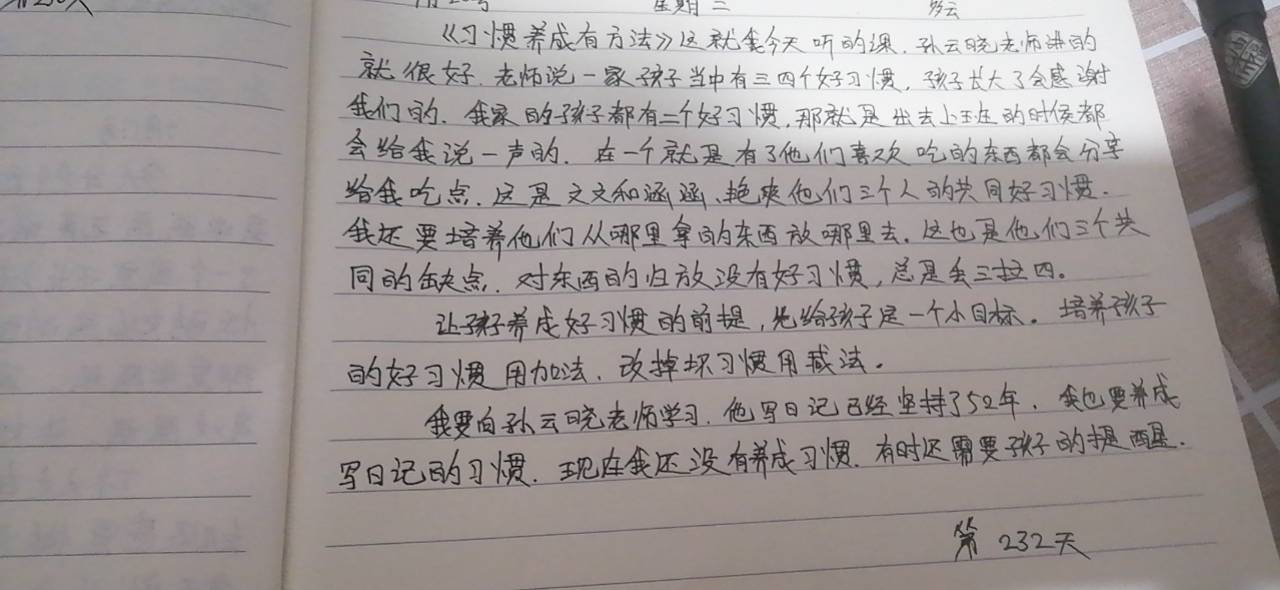 星期三 多云
《习惯养成有方法》这就我今天听的课.孙云晓老师讲的
就很好.老师说一家孩子当中有三四个好习惯,孩子长大了会感谢
我们的.我家的孩子都有二个好习惯,那就是出去上班的时候都
会给我说一声的.在一个就是有了他们喜欢吃的东西都会分享
给我吃点.这是文文和涵涵、艳爽他们三个人的共同好习惯.
我还要培养他们从哪里拿的东西放哪里去.这也是他们三个共
同的缺点.对东西的归放没有好习惯,总是丢三拉四。
让孩子养成好习惯的前提,先给孩子定一个小目标。培养孩子
的好习惯用加法.改掉坏习惯用减法。
我要向孙云晓老师学习.他写日记已经坚持了52年.我也要养成
写日记的习惯.现在我还没有养成习惯.有时还需要孩子的提醒.
第232天